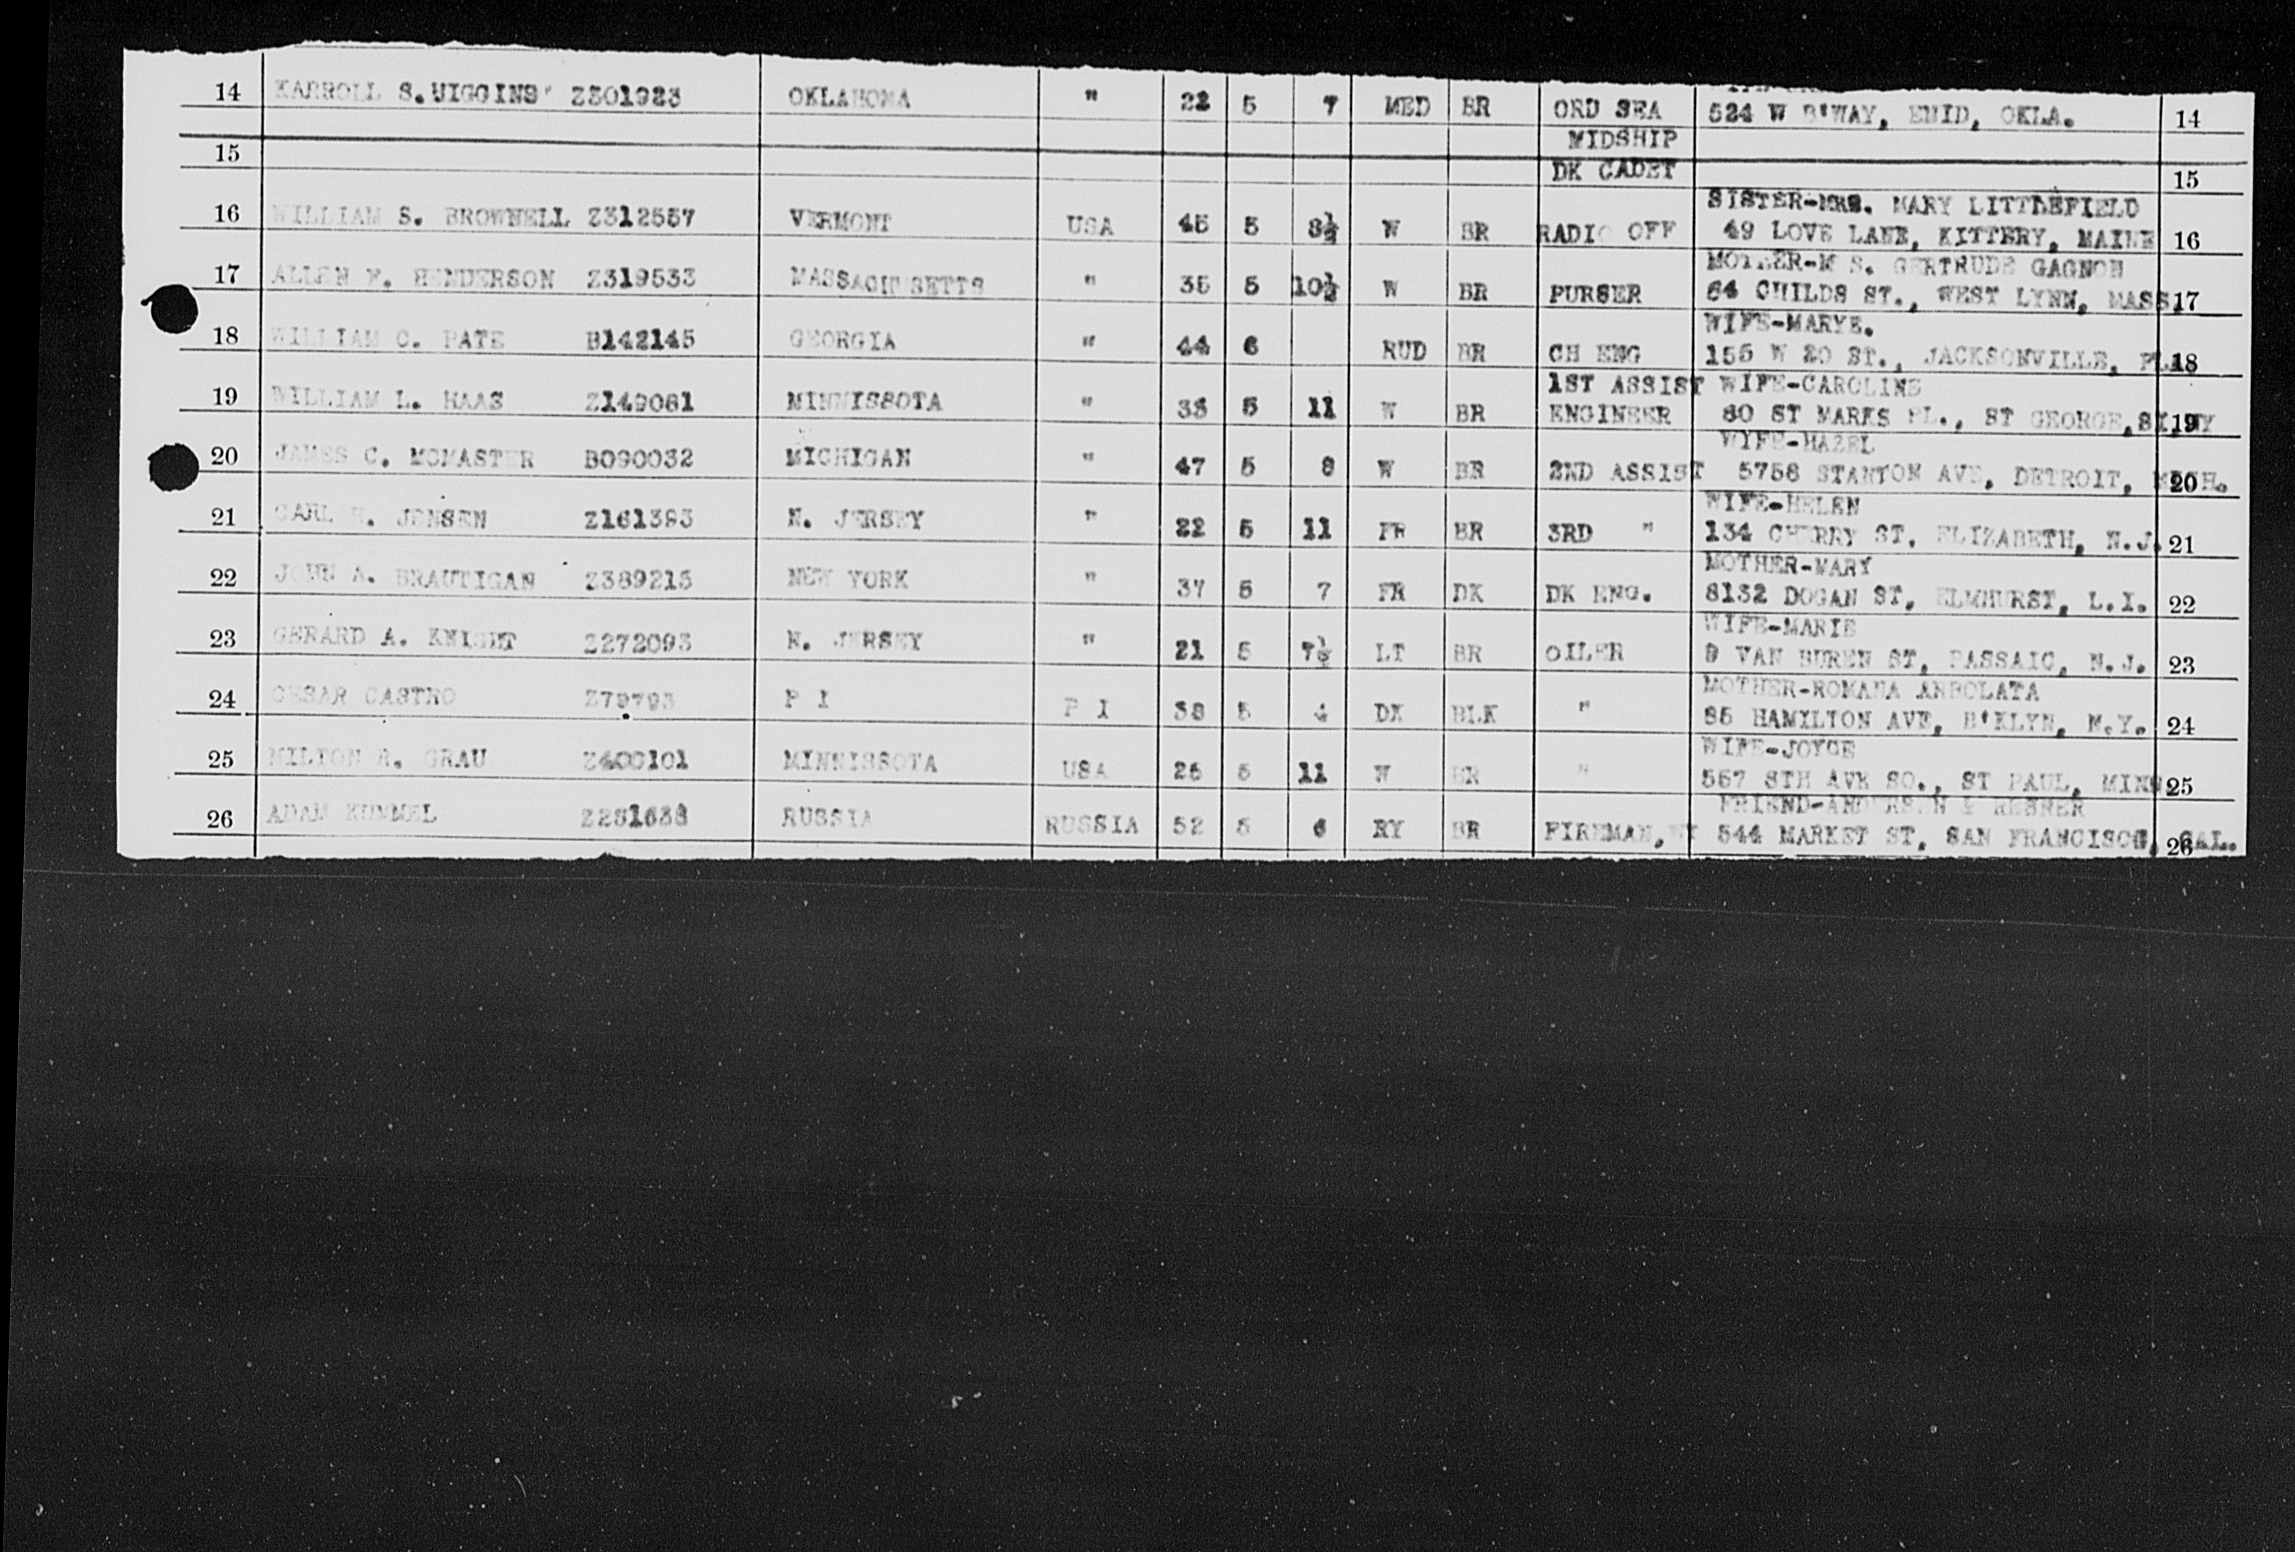 14 KARROLL S. UIGGINS Z301923 OKLAHOMA " 22 5 7 MED BR ORD SEA 524 W B'WAY, ENID, OKLA. 14
MIDSHIP
15 DK CADET 15
SISTER-MRS. MARY LITTLEFIELD
16 WILLIAM S. BROWNELL Z312557 VERMONT USA 45 5 8½ W BR RADIO OFF 49 LOVE LANE, KITTERY, MAINE 16
MOTHER-M S. GERTRUDE GAGNON
17 ALLEN HENDERSON Z319533 MASSACHUSETTS " 35 5 10½ W BR PURSER 64 CHILDS ST., WEST LYNN, MASS 17
WIFE-MARYE.
18 WILLIAM C. PATE B142145 GEORGIA " 44 6 RUD BR CH ENG 155 W 20 ST., JACKSONVILLE, FLA 18
1ST ASSIST WIFE-CAROLINE
19 WILLIAM L. HAAS Z149081 MINNISSOTA " 33 5 11 W BR ENGINEER 80 ST MARKS PL., ST GEORGE, SI, NY 19
WIFE-HAZEL
20 JAMES C. MCMASTER B090032 MICHIGAN " 47 5 8 W BR 2ND ASSIST 5758 STANTON AVE, DETROIT, MICH. 20
WIFE-HELEN
21 CARL JENSEN Z161393 N. JERSEY " 22 5 11 FR BR 3RD " 134 CHERRY ST, ELIZABETH, N.J. 21
MOTHER-MARY
22 JOHN A. BRAUTIGAN Z389215 NEW YORK " 37 5 7 FR DK DK ENG. 8132 DOGAN ST, ELMHURST, L.I. 22
WIFE-MARIE
23 GERARD A. KNIGHT Z272093 N. JERSEY " 21 5 7½ LT BR OILER 9 VAN BUREN ST, PASSAIC, N.J. 23
MOTHER-ROMANA
24 CESAR CASTRO Z79793 P I P I 38 5 4 DK BLK " 85 HAMILTON AVE, B'KLYN, N.Y. 24
WIFE-JOYCE
25 MILTON R. GRAU Z400101 MINNISSOTA USA 25 5 11 W BR " 557 8TH AVE SO., ST PAUL, MINN 25
FRIEND-ANDERSON & RESNER
26 ADAM KUMMEL Z281638 RUSSIA RUSSIA 52 5 6 RY BR FIREMAN, WT 544 MARKET ST, SAN FRANCISCO, CAL. 26